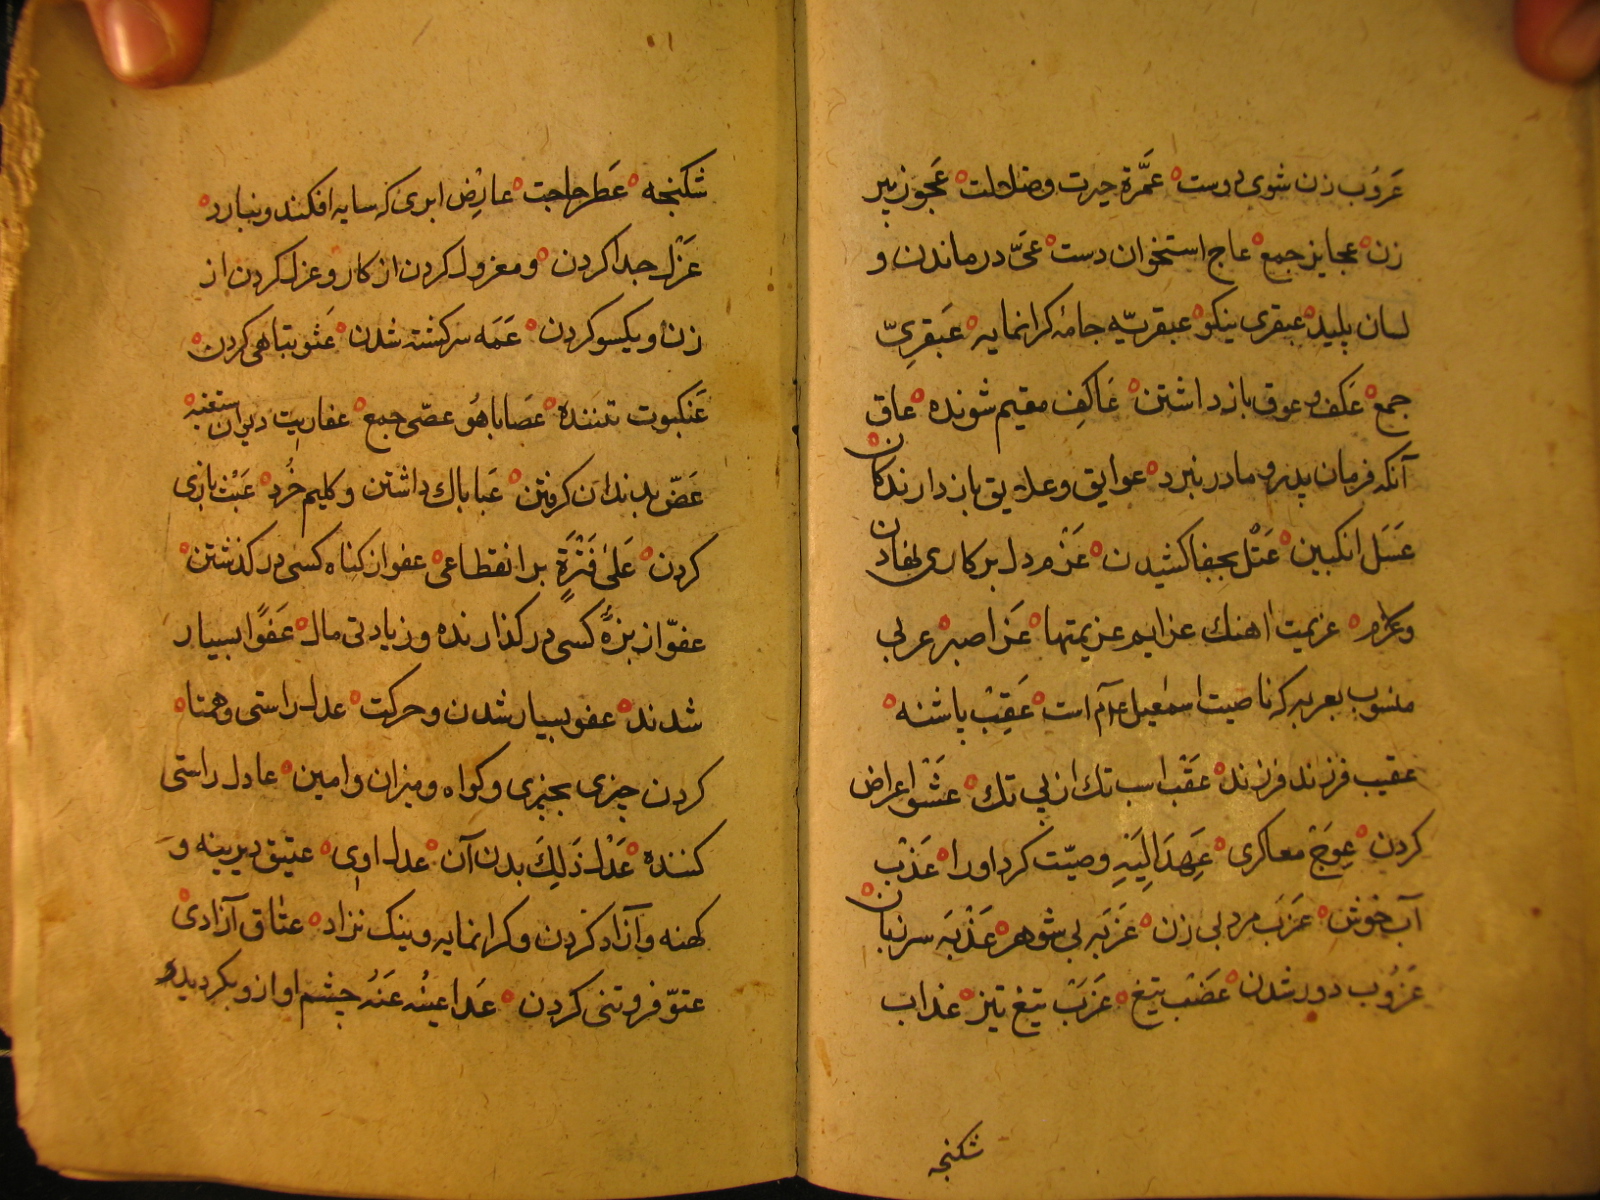 عَرُوب زن شوی دوست عمَّرة حیرت وضلالت عَجُوز پیر
زن عجایز جمع عاج استخوان دست عَیّ درماندن و
لسان پلید عبقری نیکو عبقریّه جامهٔ کرانمایه عَبقرِیّ
جمع عَکف و عوق بازداشتن عَاکِف مقیم شونده عاق
آنکه فرمان پدر و مادر نبرد عوایق وعلایق بازدارندکان
عَسَل انکبین عَتْل بجفا کشیدن عَزْم دل بر کاری نهادن
و عزیمت اهنك عزایم عزیمتها عَزَا صبر عربی
منسوب بعربیه که ناصیت اسمعیل است عَقِبْ پاشنه
عقیب فرزند فرزند عَقْب اسب تك از پی تك عَشْو اعراض
کردن عِوَجْ معاکری عَهِدَ اِلَیْهِ وصیّت کرد او را عَذْب
آب خوش عَزَب مرد بی زن عَزَبَه بی شوهر عَذْبَه سر زبان
عَزُوب دور شدن عَضْب تیغ عَزْبْ تیغ تیز عذاب
شکنجه
شکنجه عَطر حاجت عارِض ابری که سایه افکند و نبارد
عَزْل جدا کردن و معزول کردن از کار و عزل کردن از
زن و یکسو کردن عَمَه سرکشته شدن عَثْو تباهی کردن
عَنکبوت تننده عَصَا باهُو عصّی جمع عفاریت دیوان ستنبه
عَضّ بدندان کرفتن عَبَا باك داشتن و کلیم خُرد عَبَث بازی
کردن عَلیٰ فَتْرَةٍ بر انقطاعی عفو از کناه کسی در کذشتن
عفوّ از بزهٔ کسی در کذارنده و زیادتی مال عَفَوْا بسیار
شدند عفو بسیار شدن و حرکت عدل راستی و همتا
کردن چیزی بچیزی و کواه و میزان و امین عادل راستی
کننده عَدْلَ ذَلِكَ بدن آن عدل اوی عتیق دیرینه و
کهنه و آزاد کردن و کرانمایه و نیك نژاد عتاق آزادی
عتوّ فروتنی کردن عَدَا عینُه عَنْهُ چشم او ازو بکردید